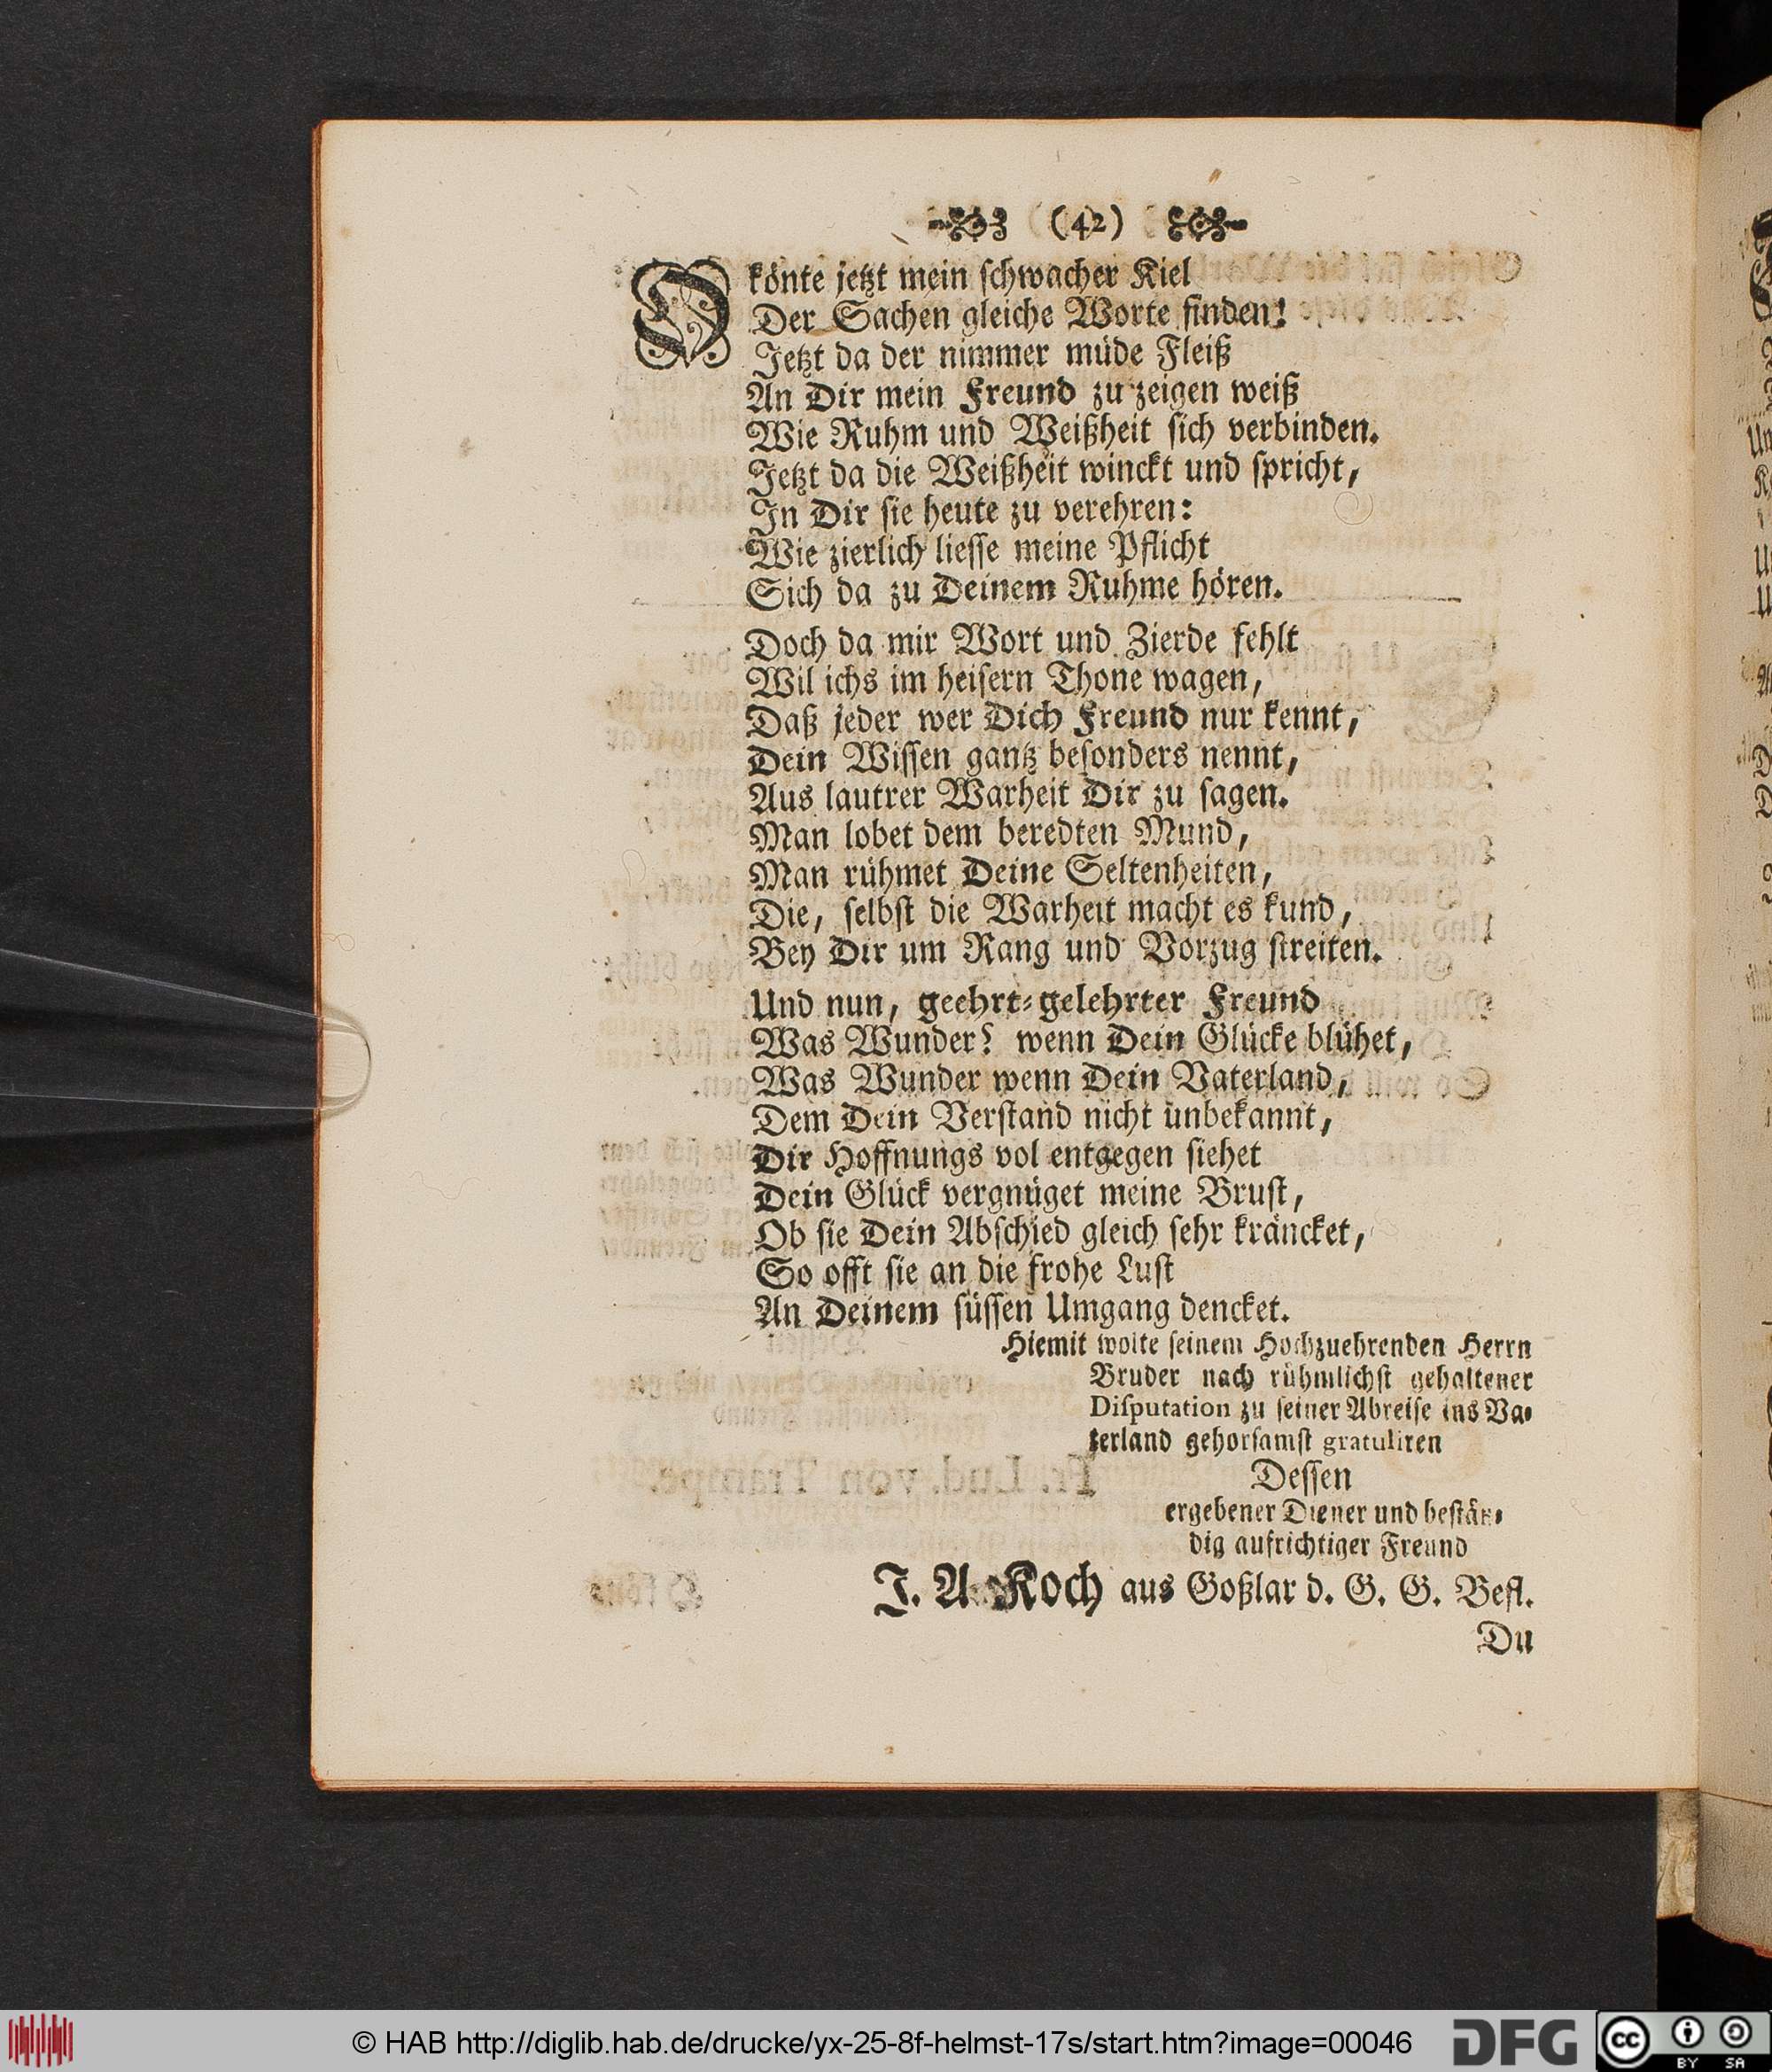 (42)
O könte jetzt mein schwacher Kiel
Der Sachen gleiche Worte finden!
Jetzt da der nimmer müde Fleiß
An Dir mein Freund zu zeigen weiß
Wie Ruhm und Weißheit sich verbinden.
Jetzt da die Weißheit winckt und spricht,
In Dir sie heute zu verehren:
Wie zierlich liesse meine Pflicht
Sich da zu Deinem Ruhme hören.
Doch da mir Wort und Zierde fehlt
Wil ichs im heisern Thone wagen,
Daß jeder wer Dich Freund nur kennt,
Dein Wissen gantz besonders nennt,
Aus lautrer Warheit Dir zu sagen.
Man lobet dem beredten Mund,
Man rühmet Deine Seltenheiten,
Die, selbst die Warheit macht es kund,
Bey Dir um Rang und Vorzug streiten.
Und nun, geehrt-gelehrter Freund
Was Wunder? wenn Dein Glücke blühet,
Was Wunder wenn Dein Vaterland,
Dem Dein Verstand nicht unbekannt,
Dir Hoffnungs vol entgegen siehet
Dein Glück vergnüget meine Brust,
Ob sie Dein Abschied gleich sehr kräncket,
So offt sie an die frohe Lust
An Deinem süssen Umgang dencket.
Hiemit wolte seinem Hochzuehrenden Herrn
Bruder nach rühmlichst gehaltener
Disputation zu seiner Abreise ins Va-
terland gehorsamst gratuliren
Dessen
ergebener Diener und bestän-
dig aufrichtiger Freund
J. A. Koch aus Goßlar d. G. G. Befl.
Du
© HAB http://diglib.hab.de/drucke/yx-25-8f-helmst-17s/start.htm?image=00046
DFG
cc BY SA